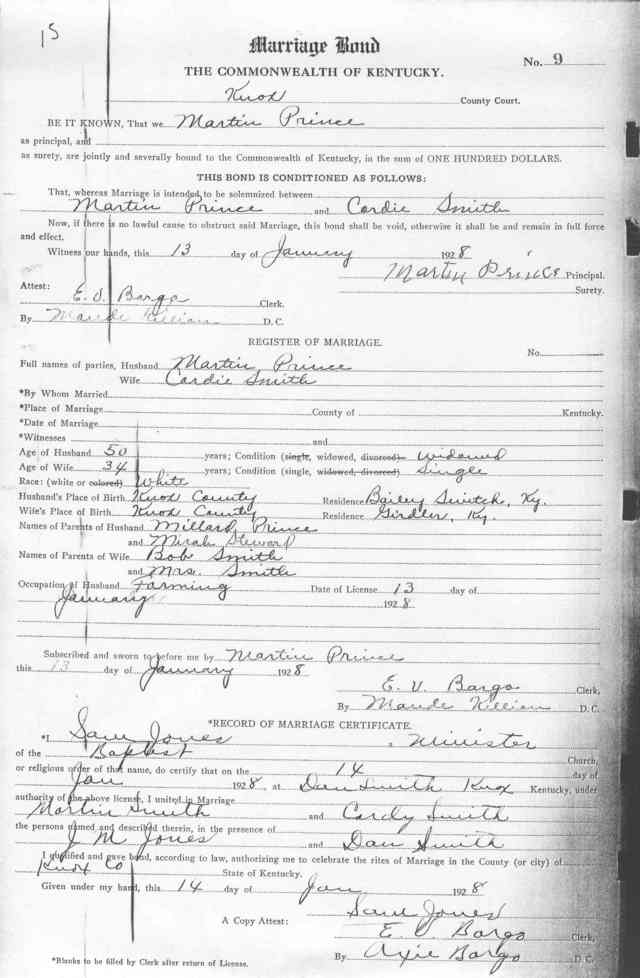 15
Marriage Bond
No. 9
THE COMMONWEALTH OF KENTUCKY.
Knox County Court.
BE IT KNOWN, That we Martin Prince
as principal, and
as surety, are jointly and severally bound to the Commonwealth of Kentucky, in the sum of ONE HUNDRED DOLLARS.
THIS BOND IS CONDITIONED AS FOLLOWS:
That, whereas Marriage is intended to be solemnized between
Martin Prince and Cordie Smith
Now, if there is no lawful cause to obstruct said Marriage, this bond shall be void, otherwise it shall be and remain in full force
and effect.
Witness our hands, this 13 day of January 1928
Martin Prince Principal.
Surety.
Attest:
E. V. Bargo Clerk.
By Maude Killian D. C.
REGISTER OF MARRIAGE.
No.
Full names of parties, Husband Martin Prince
Wife Cordie Smith
*By Whom Married
*Place of Marriage County of Kentucky.
*Date of Marriage
*Witnesses and
Age of Husband 50 years; Condition (single, widowed, divorced) Widowed
Age of Wife 34 years; Condition (single, widowed, divorced) Single
Race: (white or colored) White
Husband's Place of Birth Knox County Residence Bailey Switch, Ky.
Wife's Place of Birth Knox County Residence Girdler, Ky.
Names of Parents of Husband Millard Prince
and Mirah Steward
Names of Parents of Wife Bob Smith
and Mrs. Smith
Occupation of Husband Farming Date of License 13 day of
January 1928
Subscribed and sworn to before me by Martin Prince
this 13 day of January 1928
E. V. Bargo Clerk,
By Maude Killian D. C.
*RECORD OF MARRIAGE CERTIFICATE.
*I Sam Jones, Minister
of the Baptist Church,
or religious order of that name, do certify that on the 14 day of
Jan 1928 at Dan Smith Knox Kentucky, under
authority of the above license, I united in Marriage
Martin Smith and Cordy Smith
the persons named and described therein, in the presence of
J M Jones and Dan Smith
I qualified and gave bond, according to law, authorizing me to celebrate the rites of Marriage in the County (or city) of
Knox Co State of Kentucky.
Given under my hand, this 14 day of Jan 1928
Sam Jones
A Copy Attest: E. V. Bargo Clerk,
By Axie Bargo D. C.
*Blanks to be filled by Clerk after return of License.